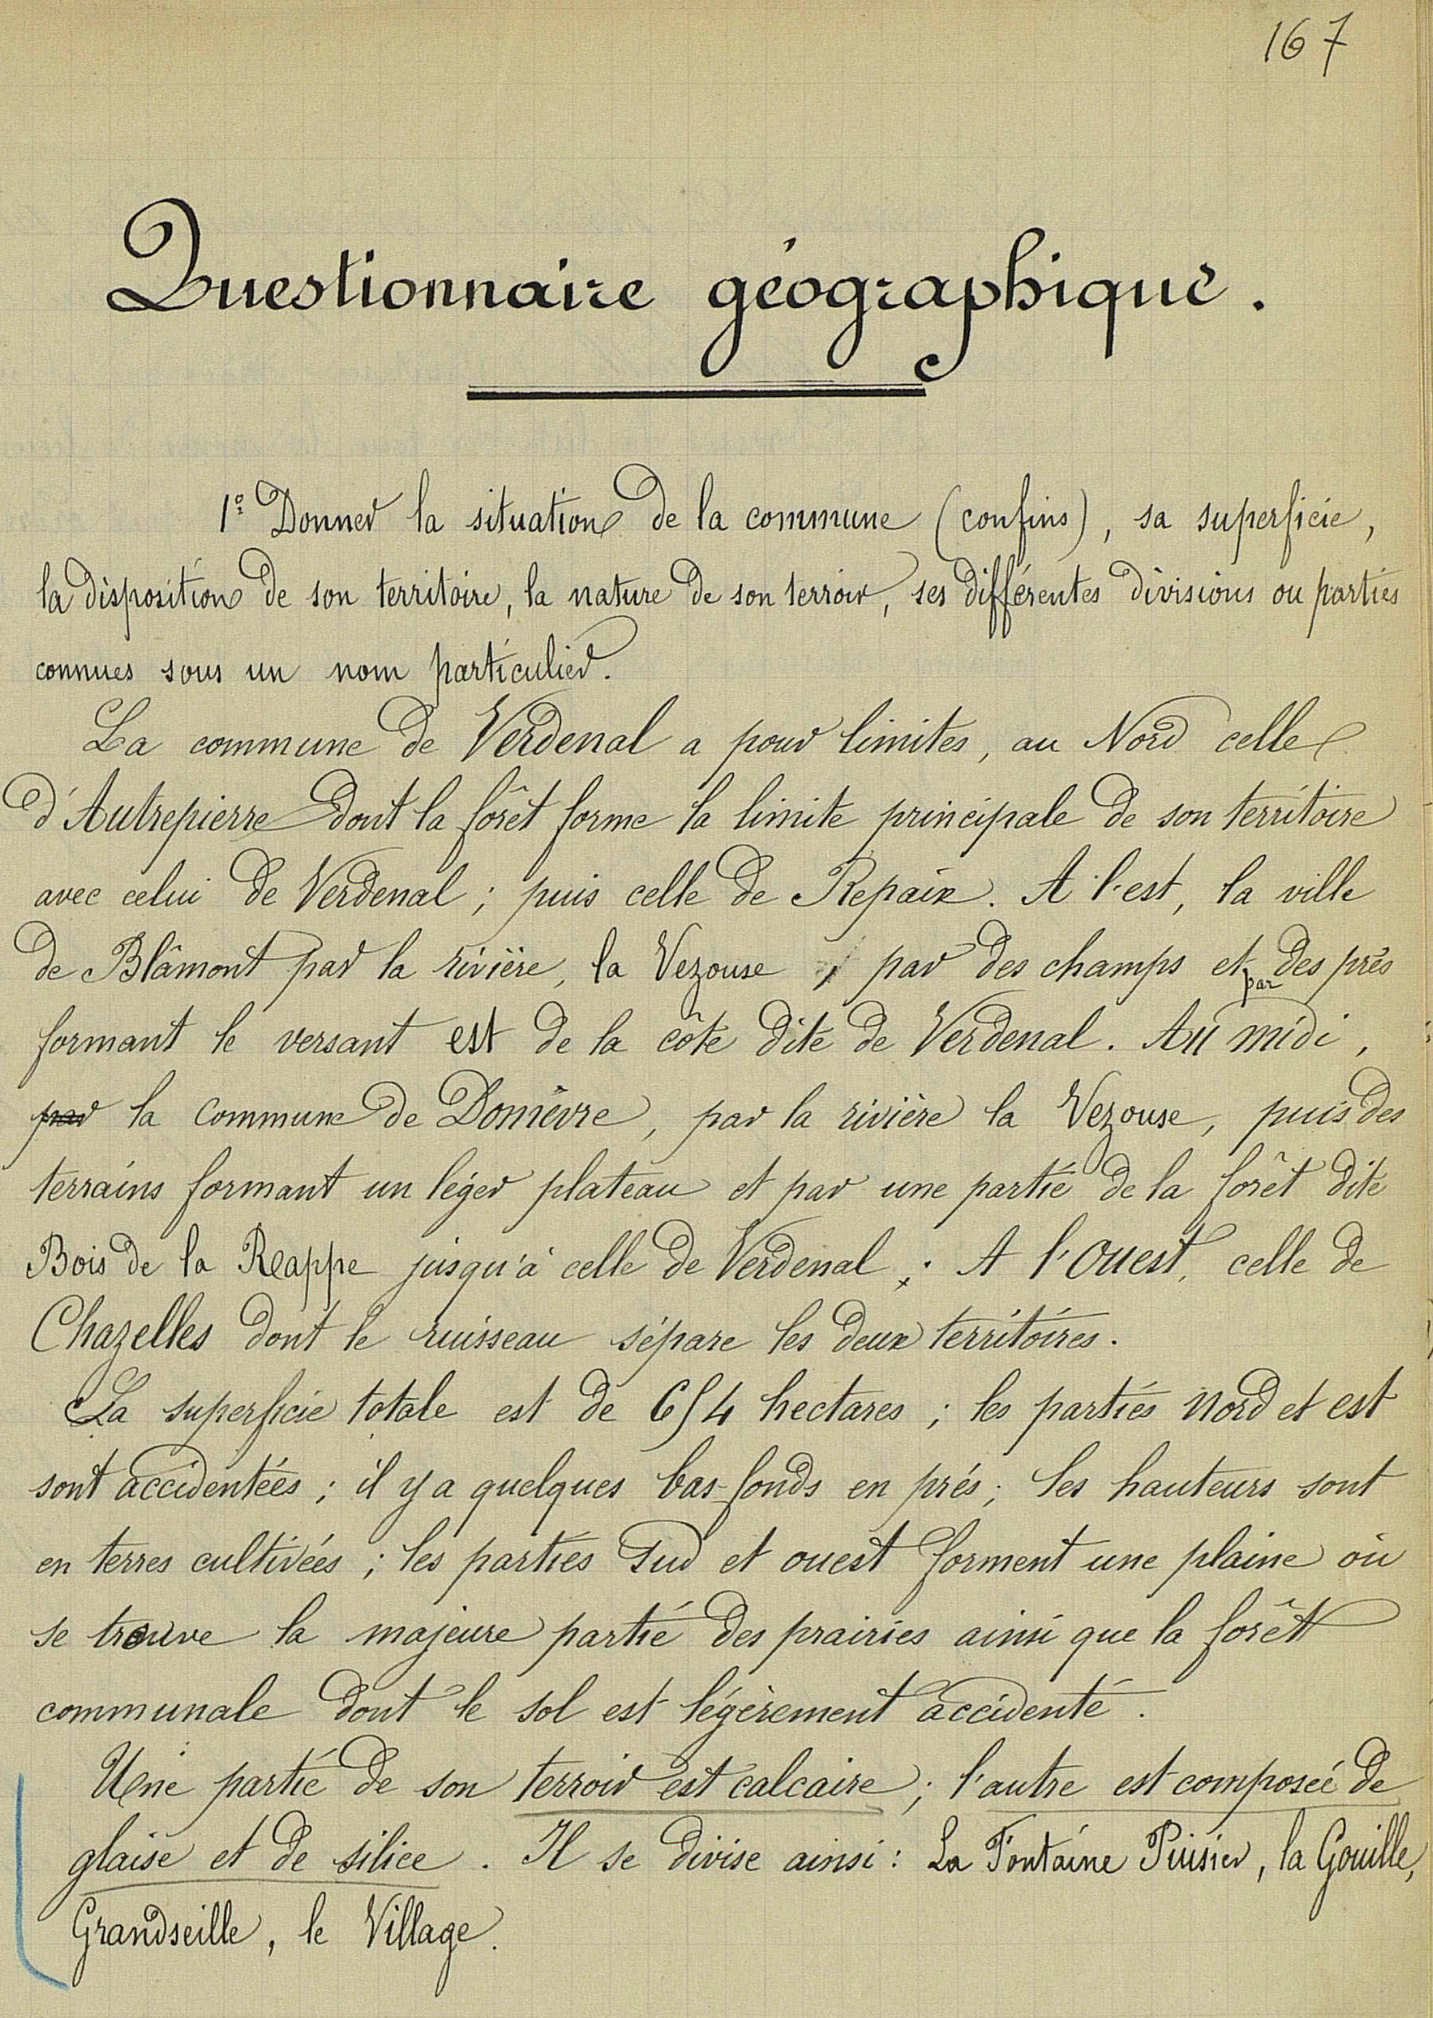 167
Questionnaire géographique.
1° Donner la situation de la commune (confins), sa superficie,
la disposition de son territoire, la nature de son terroir, ses différentes divisions ou parties
connues sous un nom particulier.
La commune de Verdenal a pour limites, au Nord celle
d'Autrepierre dont la forêt forme la limite principale de son territoire
avec celui de Verdenal ; puis celle de Repaix. A l'est, la ville
de Blâmont par la rivière, la Vezouse, par des champs et par des prés
formant le versant est de la côte dite de Verdenal. Au midi,
par la commune de Domèvre, par la rivière la Vezouse, puis des
terrains formant un léger plateau et par une partie de la forêt dite
Bois de la Reappe jusqu'à celle de Verdenal ; A l'Ouest, celle de
Chazelles dont le ruisseau sépare les deux territoires.
La superficie totale est de 654 hectares ; les parties Nord et est
sont accidentées ; il y a quelques bas-fonds en prés ; les hauteurs sont
en terres cultivées ; les parties Sud et ouest forment une plaine où
se trouve la majeure partie des prairies ainsi que la forêt
communale dont le sol est légèrement accidenté.
Une partie de son terroir est calcaire ; l'autre est composée de
glaise et de silice. Il se divise ainsi : La Fontaine Puisier, la Gouille,
Grandseille, le Village.